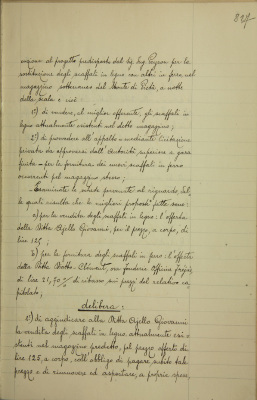 827
cuzione al progetto predisposto dal Sig. Ing. per la
sostituzione degli scaffali in legno con altri in ferro nel
magazzino sotterraneo del Monte di Pietà, a notte
della scala e cioè:
1°) di vendere, al miglior offerente, gli scaffali in
legno attualmente esistenti nel detto magazzino;
2°) di procedere all'appalto mediante licitazione
privata da approvarsi dall'Autorità superiore a gara
per la fornitura dei nuovi scaffali in ferro
occorrenti pel magazzino stesso;
Esaminate le schede pervenute al riguardo, dal
le quali risulta che le migliori proposte fatte sono:
a) per la vendita degli scaffali in legno: l'offerta
della Ditta Ajello Giovanni, per il prezzo, a corpo, di
lire 125;
b) per la fornitura degli scaffali in ferro: l'offerta
della Ditta Officina
di lire 21,50 % di ribasso sui prezzi del relativo ca
pitolato;
delibera:
1°) di aggiudicare alla Ditta Ajello Giovanni
la vendita degli scaffali in legno attualmente esi=
stenti nel magazzino predetto, pel prezzo offerto di
lire 125, a corpo, coll'obbligo di pagare subito tale
prezzo e di rimuovere ed asportare, a proprie spese,